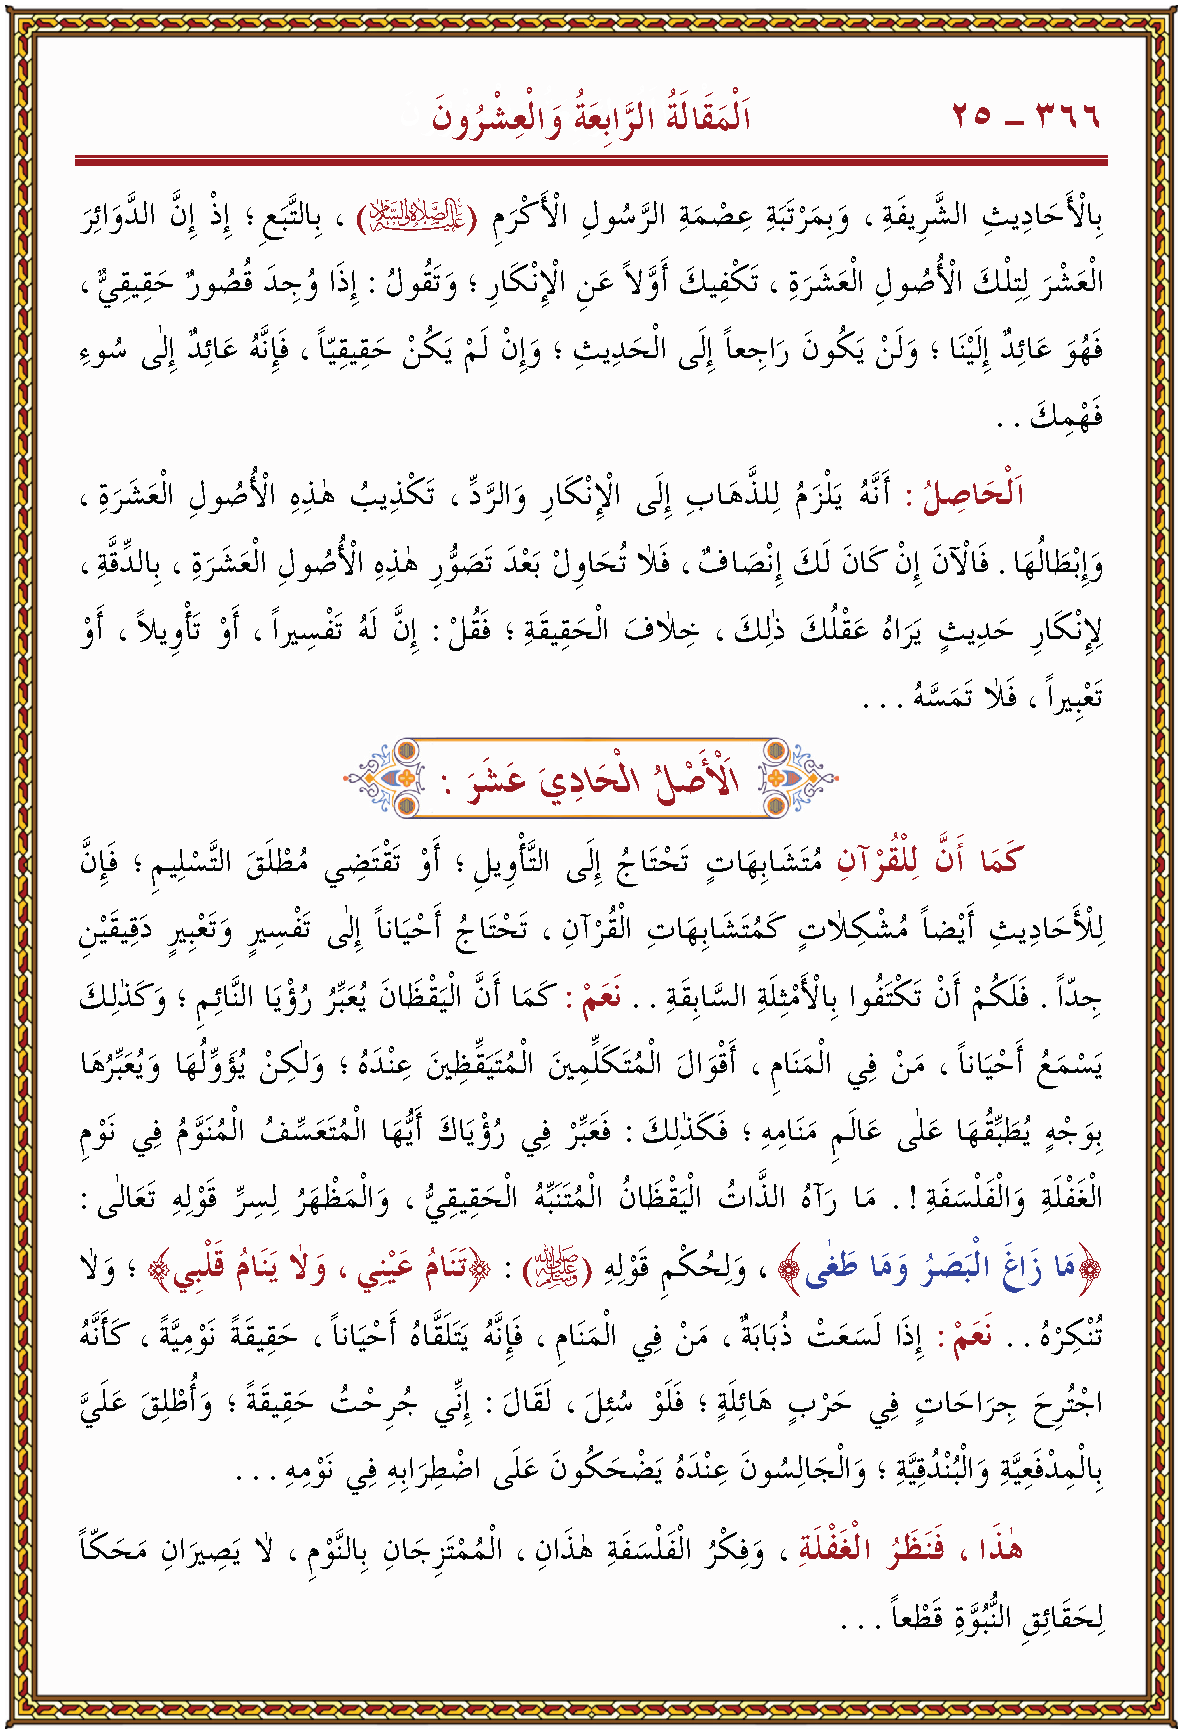 ٣٦٦ ـ ٢٥ اَلْمَقَالَةُ الرَّابِعَةُ وَالْعِشْرُونَ
بِالْأَحَادِيثِ الشَّرِيفَةِ ، وَبِمَرْتَبَةِ عِصْمَةِ الرَّسُولِ الْأَكْرَمِ (عَلَيْهِ الصَّلَاةُ وَالسَّلَامُ) ، بِالتَّبَعِ ؛ إِذْ إِنَّ الدَّوَائِرَ
الْعَشْرَ لِتِلْكَ الْأُصُولِ الْعَشَرَةِ ، تَكْفِيكَ أَوَّلاً عَنِ الْإِنْكَارِ ؛ وَتَقُولُ : إِذَا وُجِدَ قُصُورٌ حَقِيقِيٌّ ،
فَهُوَ عَائِدٌ إِلَيْنَا ؛ وَلَنْ يَكُونَ رَاجِعاً إِلَى الْحَدِيثِ ؛ وَإِنْ لَمْ يَكُنْ حَقِيقِيّاً ، فَإِنَّهُ عَائِدٌ إِلٰى سُوءِ
فَهْمِكَ . .
اَلْحَاصِلُ : أَنَّهُ يَلْزَمُ لِلذَّهَابِ إِلَى الْإِنْكَارِ وَالرَّدِّ ، تَكْذِيبُ هٰذِهِ الْأُصُولِ الْعَشَرَةِ ،
وَإِبْطَالُهَا . فَالْآنَ إِنْ كَانَ لَكَ إِنْصَافٌ ، فَلَا تُحَاوِلْ بَعْدَ تَصَوُّرِ هٰذِهِ الْأُصُولِ الْعَشَرَةِ ، بِالدِّقَّةِ ،
لِإِنْكَارِ حَدِيثٍ يَرَاهُ عَقْلُكَ ذٰلِكَ ، خِلَافَ الْحَقِيقَةِ ؛ فَقُلْ : إِنَّ لَهُ تَفْسِيراً ، أَوْ تَأْوِيلاً ، أَوْ
تَعْبِيراً ، فَلَا تَمَسَّهُ . . .
اَلْأَصْلُ الْحَادِيَ عَشَرَ :
كَمَا أَنَّ لِلْقُرْآنِ مُتَشَابِهَاتٍ تَحْتَاجُ إِلَى التَّأْوِيلِ ؛ أَوْ تَقْتَضِي مُطْلَقَ التَّسْلِيمِ ؛ فَإِنَّ
لِلْأَحَادِيثِ أَيْضاً مُشْكِلَاتٍ كَمُتَشَابِهَاتِ الْقُرْآنِ ، تَحْتَاجُ أَحْيَاناً إِلٰى تَفْسِيرٍ وَتَعْبِيرٍ دَقِيقَيْنِ
جِدّاً . فَلَكُمْ أَنْ تَكْتَفُوا بِالْأَمْثِلَةِ السَّابِقَةِ . . نَعَمْ : كَمَا أَنَّ الْيَقْظَانَ يُعَبِّرُ رُؤْيَا النَّائِمِ ؛ وَكَذٰلِكَ
يَسْمَعُ أَحْيَاناً ، مَنْ فِي الْمَنَامِ ، أَقْوَالَ الْمُتَكَلِّمِينَ الْمُتَيَقِّظِينَ عِنْدَهُ ؛ وَلٰكِنْ يُؤَوِّلُهَا وَيُعَبِّرُهَا
بِوَجْهٍ يُطَبِّقُهَا عَلٰى عَالَمِ مَنَامِهِ ؛ فَكَذٰلِكَ : فَعَبِّرْ فِي رُؤْيَاكَ أَيُّهَا الْمُتَعَسِّفُ الْمُنَوَّمُ فِي نَوْمِ
الْغَفْلَةِ وَالْفَلْسَفَةِ ! . مَا رَآهُ الذَّاتُ الْيَقْظَانُ الْمُتَنَبِّهُ الْحَقِيقِيُّ ، وَالْمَظْهَرُ لِسِرِّ قَوْلِهِ تَعَالٰى :
﴿مَا زَاغَ الْبَصَرُ وَمَا طَغٰى﴾ ، وَلِحُكْمِ قَوْلِهِ (ﷺ) : ﴿تَنَامُ عَيْنِي ، وَلَا يَنَامُ قَلْبِي﴾ ؛ وَلَا
تُنْكِرْهُ . . نَعَمْ : إِذَا لَسَعَتْ ذُبَابَةٌ ، مَنْ فِي الْمَنَامِ ، فَإِنَّهُ يَتَلَقَّاهُ أَحْيَاناً ، حَقِيقَةً نَوْمِيَّةً ، كَأَنَّهُ
اجْتُرِحَ جِرَاحَاتٍ فِي حَرْبٍ هَائِلَةٍ ؛ فَلَوْ سُئِلَ ، لَقَالَ : إِنِّي جُرِحْتُ حَقِيقَةً ؛ وَأُطْلِقَ عَلَيَّ
بِالْمِدْفَعِيَّةِ وَالْبُنْدُقِيَّةِ ؛ وَالْجَالِسُونَ عِنْدَهُ يَضْحَكُونَ عَلَى اضْطِرَابِهِ فِي نَوْمِهِ . . .
هٰذَا ، فَنَظَرُ الْغَفْلَةِ ، وَفِكْرُ الْفَلْسَفَةِ هٰذَانِ ، الْمُمْتَزِجَانِ بِالنَّوْمِ ، لَا يَصِيرَانِ مَحَكّاً
لِحَقَائِقِ النُّبُوَّةِ قَطْعاً . . .